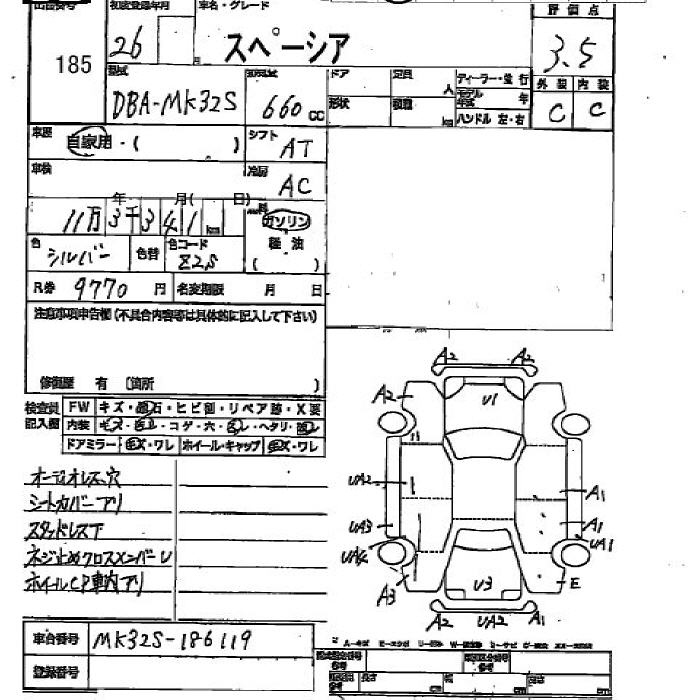 初度登録年月 車名・グレード 評価点
185 26 月 スペーシア 3.5
型式 ドア 定員 人 ディーラー・並行 外装 内装
DBA-MK32S 660 cc 形状 積載 km モデル年式 年 C C
ハンドル 左・右
車歴 自家用・( ) シフト AT
車検 年 月( 日) 冷房 AC
11万3千341 km 燃料 ガソリン
色 シルバー 色替 色コード Z2S 軽油 ( )
R券 9770 円 名変期限 月 日
注意事項申告欄(不具合内容等は具体的に記入して下さい)
修復歴 有 〔箇所 )
検査員 FW キズ・飛石・ヒビ割・リペア跡・X要
記入欄 内装
ドアミラー キズ・ワレ ホイール・キャップ キズ・ワレ
オーディオレス、穴
シートカバーアリ
スタッドレス下
ネジ止めクロスメンバーU
ホイールCP車内アリ
A2 A2
A2 U1
UA2 A1
UA3 A1
UA2 UA1
A3 U3 E
A2 UA2 A1
車台番号 MK32S-186119
登録番号
長さ cm 幅 cm 高さ cm